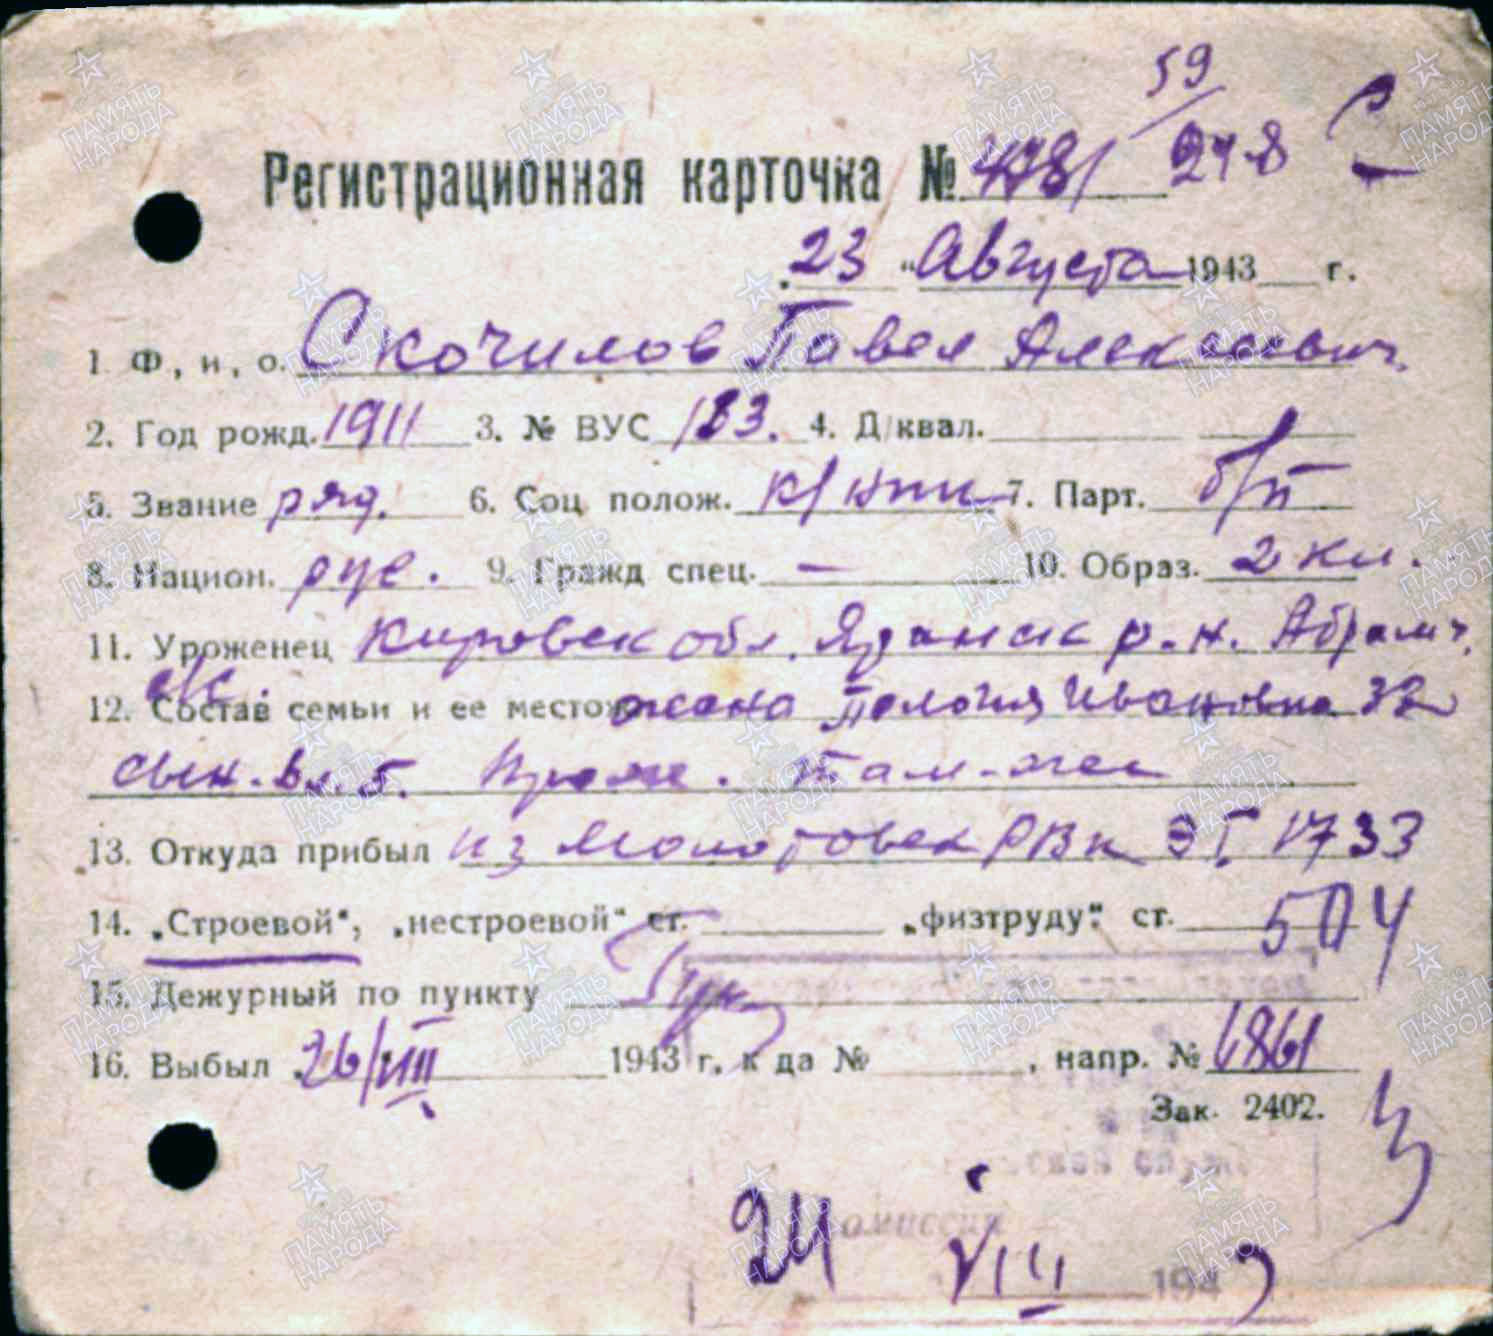 59
Регистрационная карточка № 4781 278 С
23 "Августа 1943 г.
1 Ф, и, о. Скочилов Павел Алексеевич.
2. Год рожд. 1911 3. № ВУС 183. 4. Д/квал.
5. Звание ряд. 6. Соц полож. к/кпп 7. Парт. б/п
8. Национ. рус. 9. Гражд спец. — 10. Образ. 2 кл.
11. Уроженец Кировск обл. Яранск р-н. Абрамч.
с/с.
12. Состав семьи и ее местож жена Пелогия Ивановна 32
сын. Вл. 5. прож. там-же
13. Откуда прибыл из Молотовск РВк ЭГ 1733
14. „Строевой“, „нестроевой“ ст. „физтруду“ ст. 504
15. Дежурный по пункту
16. Выбыл 26/VIII 1943 г. к да № , напр. № 6861
Зак. 2402.
омиссии
24 VIII 194
ПАМЯТЬ НАРОДА